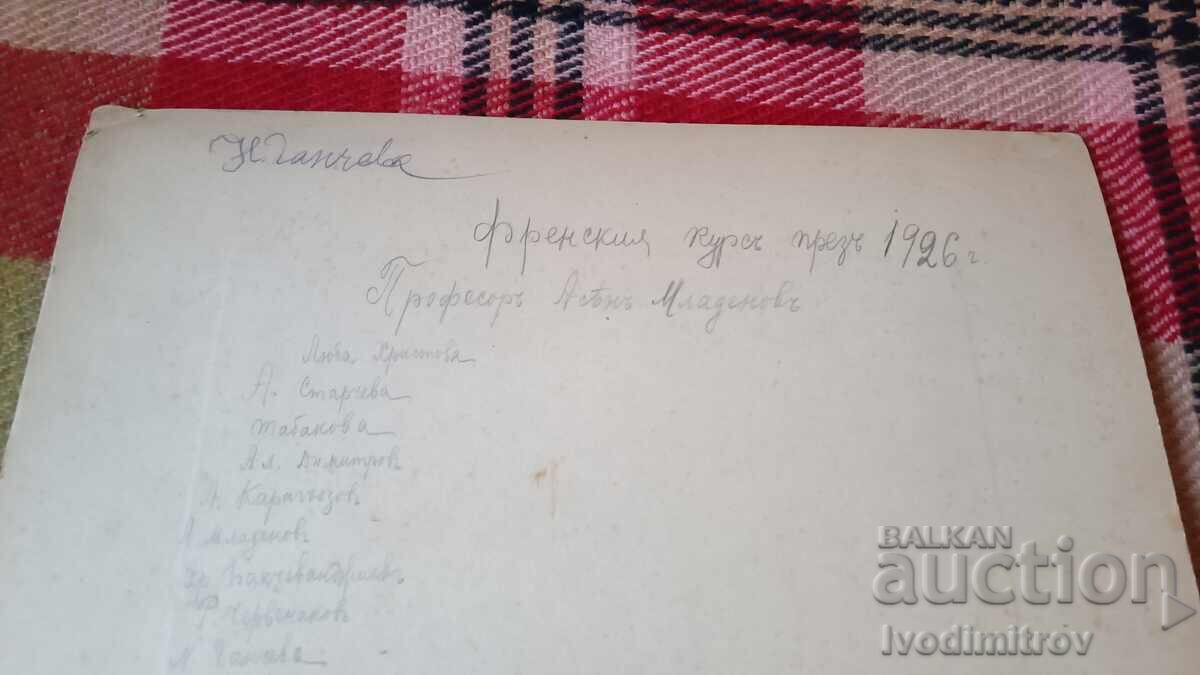 Н. Ганчева
Френския курсъ презъ 1926 г.
Професоръ Асѣнъ Младеновъ
Люба Христова
А. Старчева
Табакова
Ал. Димитровъ
Карагьозовъ
Младеновъ
Червенаковъ
Ганчева
BALKAN
auction
Ivodimitrov